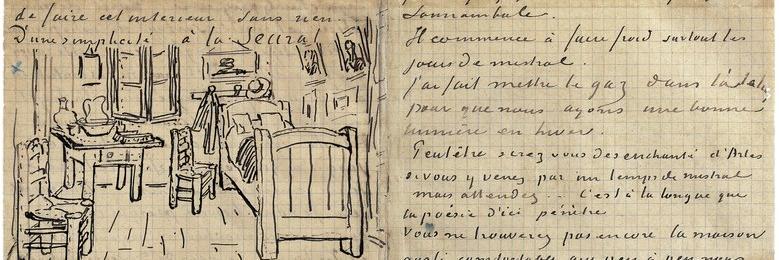 de faire cet interieur sans rien
d'une simplicité à la Seurat
Somnambule.
Il commence à faire froid surtout les
jours de mistral.
J'ai fait mettre le gaz dans l'atelier
pour que nous ayons une bonne
lumière en hiver.
Peutêtre serez vous desenchanté d'Arles
si vous y venez par un temps de mistral
mais attendez .. C'est à la longue que
la poésie d'ici pénètre
Vous ne trouverez pas encore la maison
aussi confortable que peu à peu nous